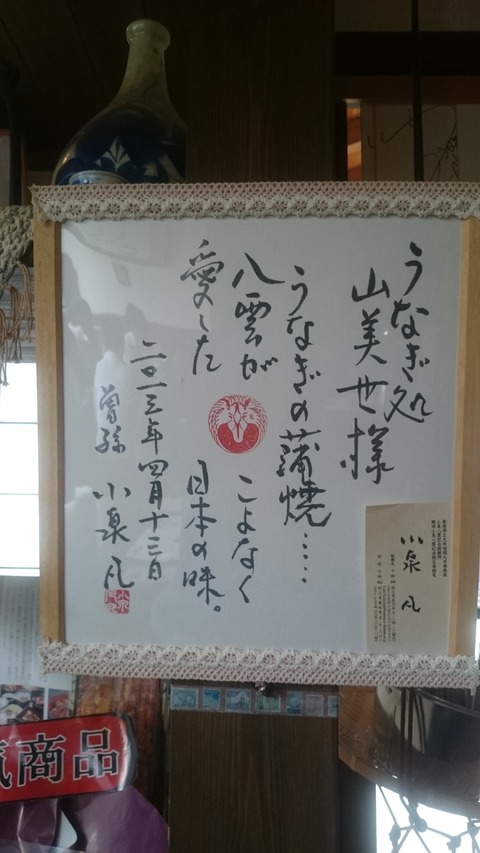 うなぎ処
山美世様
うなぎの蒲焼……
八雲が こよなく
愛した 日本の味。
二〇一三年四月十三日
曾孫 小泉 凡
小泉 凡
気商品